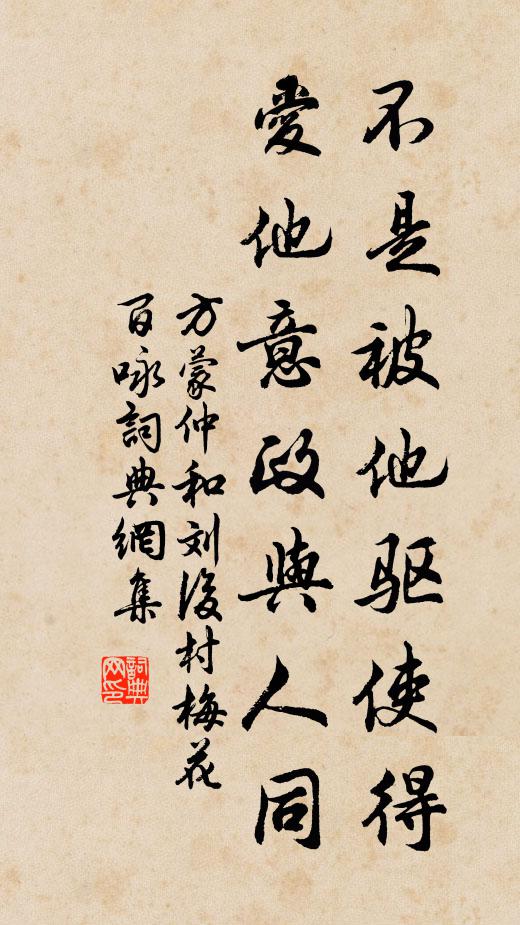 不是被他驱使得
愛他意政與人同
方蒙仲和刘後村梅花
百咏詞典網集
詞典网印